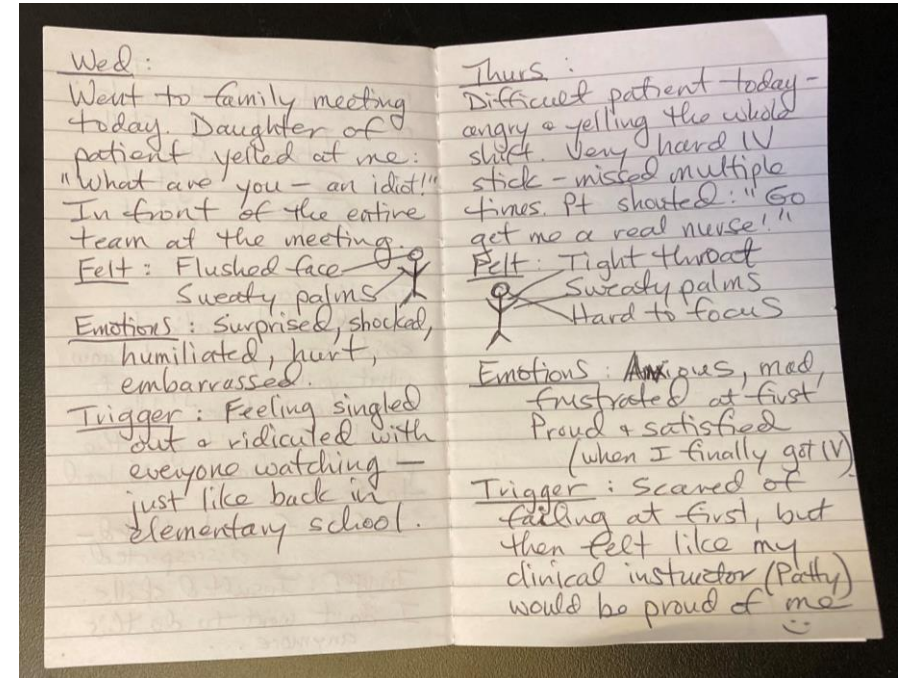 Wed:
Went to family meeting
today. Daughter of
patient yelled at me:
"What are you – an idiot!"
In front of the entire
team at the meeting.
Felt: Flushed face
Sweaty palms
Emotions: Surprised, shocked,
humiliated, hurt,
embarrassed.
Trigger: Feeling singled
out & ridiculed with
everyone watching –
just like back in
elementary school.
Thurs:
Difficult patient today –
angry & yelling the whole
shift. Very hard IV
stick – missed multiple
times. Pt shouted: "Go
get me a real nurse!"
Felt: Tight throat
Sweaty palms
Hard to focus
Emotions: Anxious, mad,
frustrated at first
Proud & satisfied
(when I finally got IV)
Trigger: Scared of
failing at first, but
then felt like my
clinical instuctor (Patty)
would be proud of me